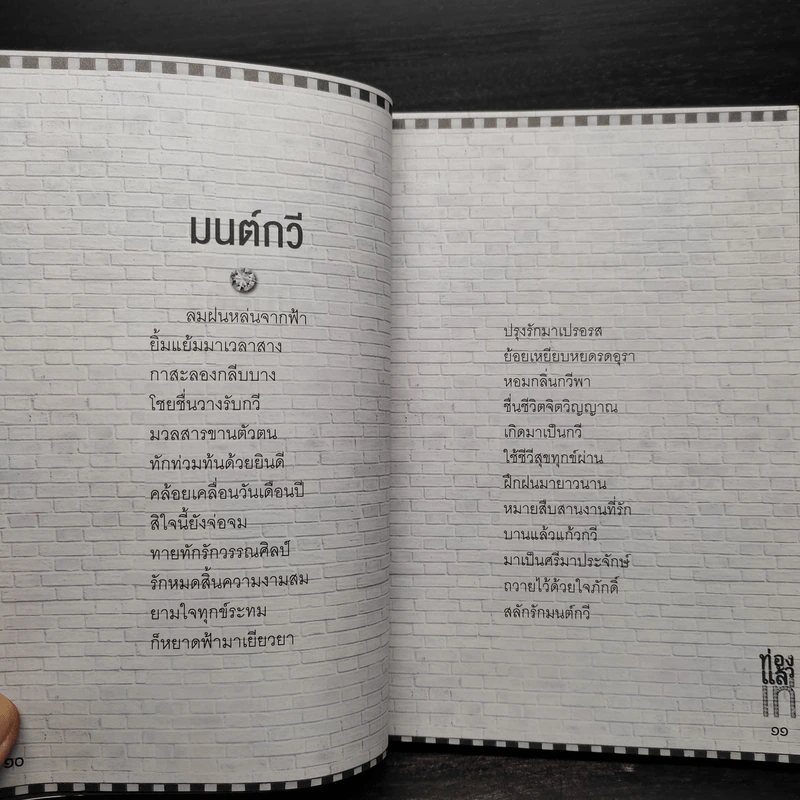 มนต์กวี
ลมฝนหล่นจากฟ้า
ยิ้มแย้มมาเวลาสาง
กาสะลองกลีบบาง
โชยชื่นวางรับกวี
มวลสารขานตัวตน
ทักท่วมท้นด้วยยินดี
คล้อยเคลื่อนวันเดือนปี
สิใจนี้ยังจ่อจม
ทายทักรักวรรณศิลป์
รักหมดสิ้นความงามสม
ยามใจทุกข์ระทม
ก็หยาดฟ้ามาเยียวยา
๑๐
ปรุงรักมาเปรอรส
ย้อยเหยียบหยดรดอุรา
หอมกลิ่นกวีพา
ชื่นชีวิตจิตวิญญาณ
เกิดมาเป็นกวี
ใช้ชีวีสุขทุกข์ผ่าน
ฝึกฝนมายาวนาน
หมายสืบสานงานที่รัก
บานแล้วแก้วกวี
มาเป็นศรีมาประจักษ์
ถวายไว้ด้วยใจภักดิ์
สลักรักมนต์กวี
ท่อง
แล้ว
เท่
๑๑